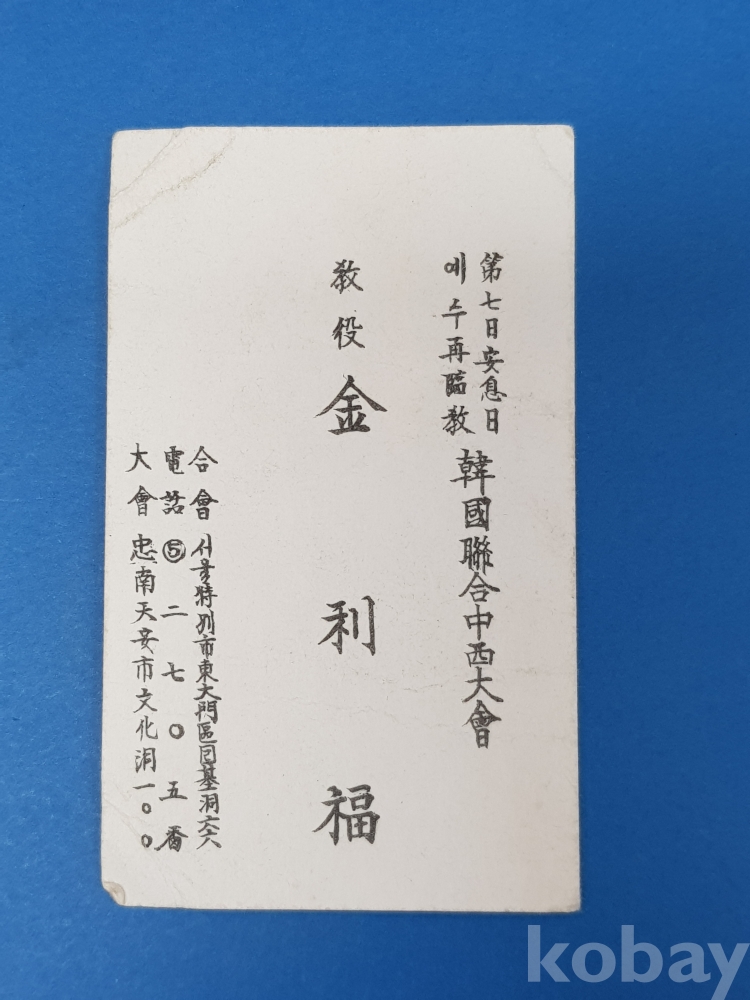 第七日安息日
예수再臨敎
韓國聯合中西大會
敎役 金利福
合會 서울特別市東大門區回基洞六六
電話 ⑤二七〇五番
大會 忠南天安市文化洞一〇〇
kobay